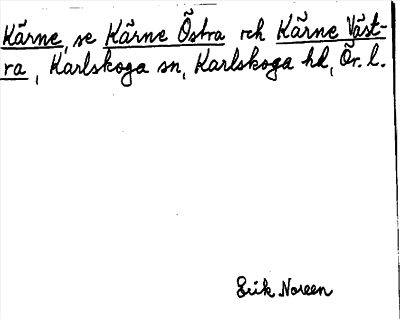 Kärne, se Kärne Östra och Kärne Väst-
ra, Karlskoga sn, Karlskoga hd, Ör. l.
Erik Noreen